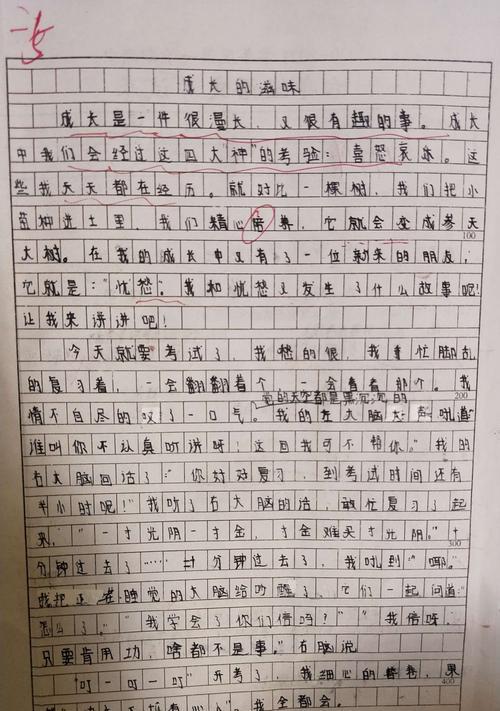 成长的滋味
成长是一件很漫长，又很有趣的事。成长
中我们会经过这"四大神"的考验：喜怒哀乐。这
些我天天都在经历。就好比一棵树，我们把小
苗种进土里，我们精心陪养，它就会变成参天
100
大树。在我的成长中又有了一位新来的朋友，
它就是："忧愁"；我和忧愁又发生了什么故事呢！
让我来讲讲吧！
今天就要考试了，我愁的很，我手忙脚乱
的复习着，一会翻翻看个，一会看看那个。我
觉的天空都是黑沉沉的
200
情不自尽的叹了一口气。我的左大脑大声吼道
谁叫你不认真听讲呀！这回我可不帮你。"我的
右大脑回话了："你好好复习，到考试时间还有
半小时呢！"我听了右大脑的话，敢忙复习了起
来，"一寸光阴一寸金，寸金难买寸光阴。"十
300
分钟过去了……二十分钟过去了，我吼到："哪。"
我把还在睡觉的大脑给吵醒了，它们一起问道：
怎么了。""我学会了你们信吗？""我信呀，
只要肯用功，啥都不是事。"右脑说
"叮一叮一叮"开考了，我细心的答卷，果
400
我全都会。